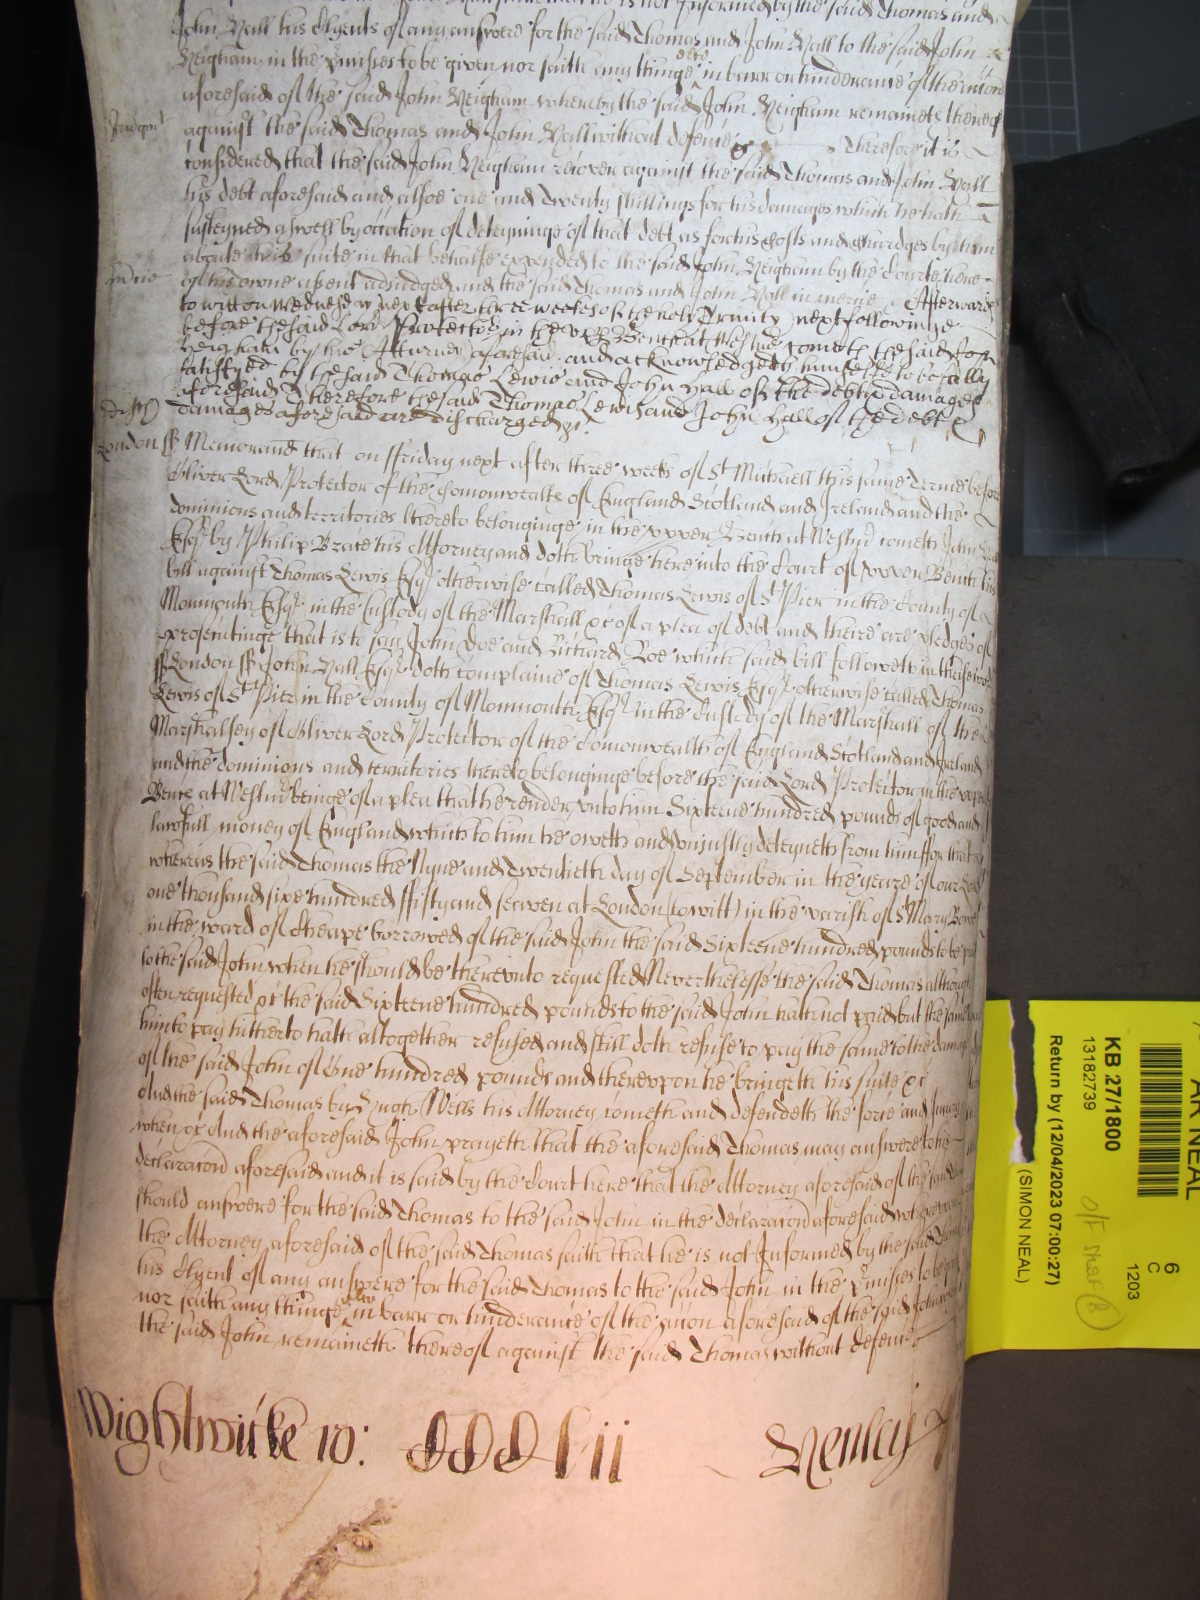 is not Informed by the said Thomas and
John Hall his Clyents of any answere for the said Thomas and John Hall to the said John
Heigham in the premisses to be given nor saith any thinge else in barr or hinderance of the accon
aforesaid of the said John Heigham whereby the said John Heigham remaineth thereof
Judgmt against the said Thomas and John Hall without defence Therefore it is
considered that the said John Heigham recover against the said Thomas and John Hall
his debt aforesaid and alsoe one and Twenty shillings for his damages which he hath
susteyned aswell by occasion of deteyninge of that debt as for his Costs and Chardges by him
about his suite in that behalfe expended to the said John Heigham by the Court here
of his owne assent adjudged and the said Thomas and John Hall in mercie Afterwards
to witt on Wednesday next after three weekes of the holy Trinity next followinge
before the said Lord Protector in the upp Bench at Westmr cometh the said John
Heigham by his Atturney aforesaid and acknowledgeth himselfe to be fully
satisfyed by the said Thomas Lewis and John Hall of the debt & damages
aforesaid Therefore the said Thomas Lewis and John Hall of the debt &
damages aforesaid are discharged &c
London ss Memorand that on ffriday next after three weeks of St Michaell this same Terme before
Oliver Lord Protector of the Comonwealth of England Scotland and Ireland and the
dominions and territories thereto belonginge in the upper Bench at Westmr cometh John Hall
Esqr by Philip Brace his Attorney and doth bringe here into the Court of upper Bench his
bill against Thomas Lewis Esqr otherwise called Thomas Lewis of St Pier in the County of
Monmouth Esqr in the Custody of the Marshall &c of a plea of debt and there are pledges of
prosecutinge that is to say John Doe and Richard Roe which said bill followeth in these words
ss London ss John Hall Esqr doth complaine of Thomas Lewis Esqr otherwise called Thomas
Lewis of St Pier in the County of Monmouth Esqr in the Custody of the Marshall of the
Marshalsey of Oliver Lord Protector of the Comonwealth of England Scotland and Ireland
and the dominions and territories thereto belonginge before the said Lord Protector in the upper
Bench at Westmr beinge of a plea that he render unto him Sixteene hundred pounds of good and
lawfull money of England which to him he oweth and unjustly deteyneth from him ffor that
whereas the said Thomas the Nyne and Twentieth day of September in the yeare of our Lord
one thousand sixe hundred ffifty and seaven at London (to witt) in the parish of St Mary Bowe
in the ward of Cheape borrowed of the said John the said Sixteene hundred pounds to be paid
to the said John when he should be thereunto requested Neverthelesse the said Thomas although
often requested &c the said Sixteene hundred pounds to the said John hath not paid but the same
him to pay hitherto hath altogether refused and still doth refuse to pay the same to the damage
of the said John of One hundred pounds and thereupon he bringeth his suite &c
And the said Thomas by Hugh Wells his Attorney cometh and defendeth the force and Injury
when &c And the aforesaid John prayeth that the aforesaid Thomas may answere to his
declaracon aforesaid and it is said by the Court here that the Attorney aforesaid of the said
should answere for the said Thomas to the said John in the declaracon aforesaid
the Attorney aforesaid of the said Thomas saith that he is not Informed by the said Thomas
his Clyent of any answere for the said Thomas to the said John in the premisses to be given
nor saith any thinge else in barr or hinderance of the accon aforesaid of the said John
the said John remaineth thereof against the said Thomas without defence
Wightwicke ro: Henley
AR NEAL
6
C
1203
KB 27/1800
13182739
Return by (12/04/2023 07:00:27)
(SIMON NEAL)